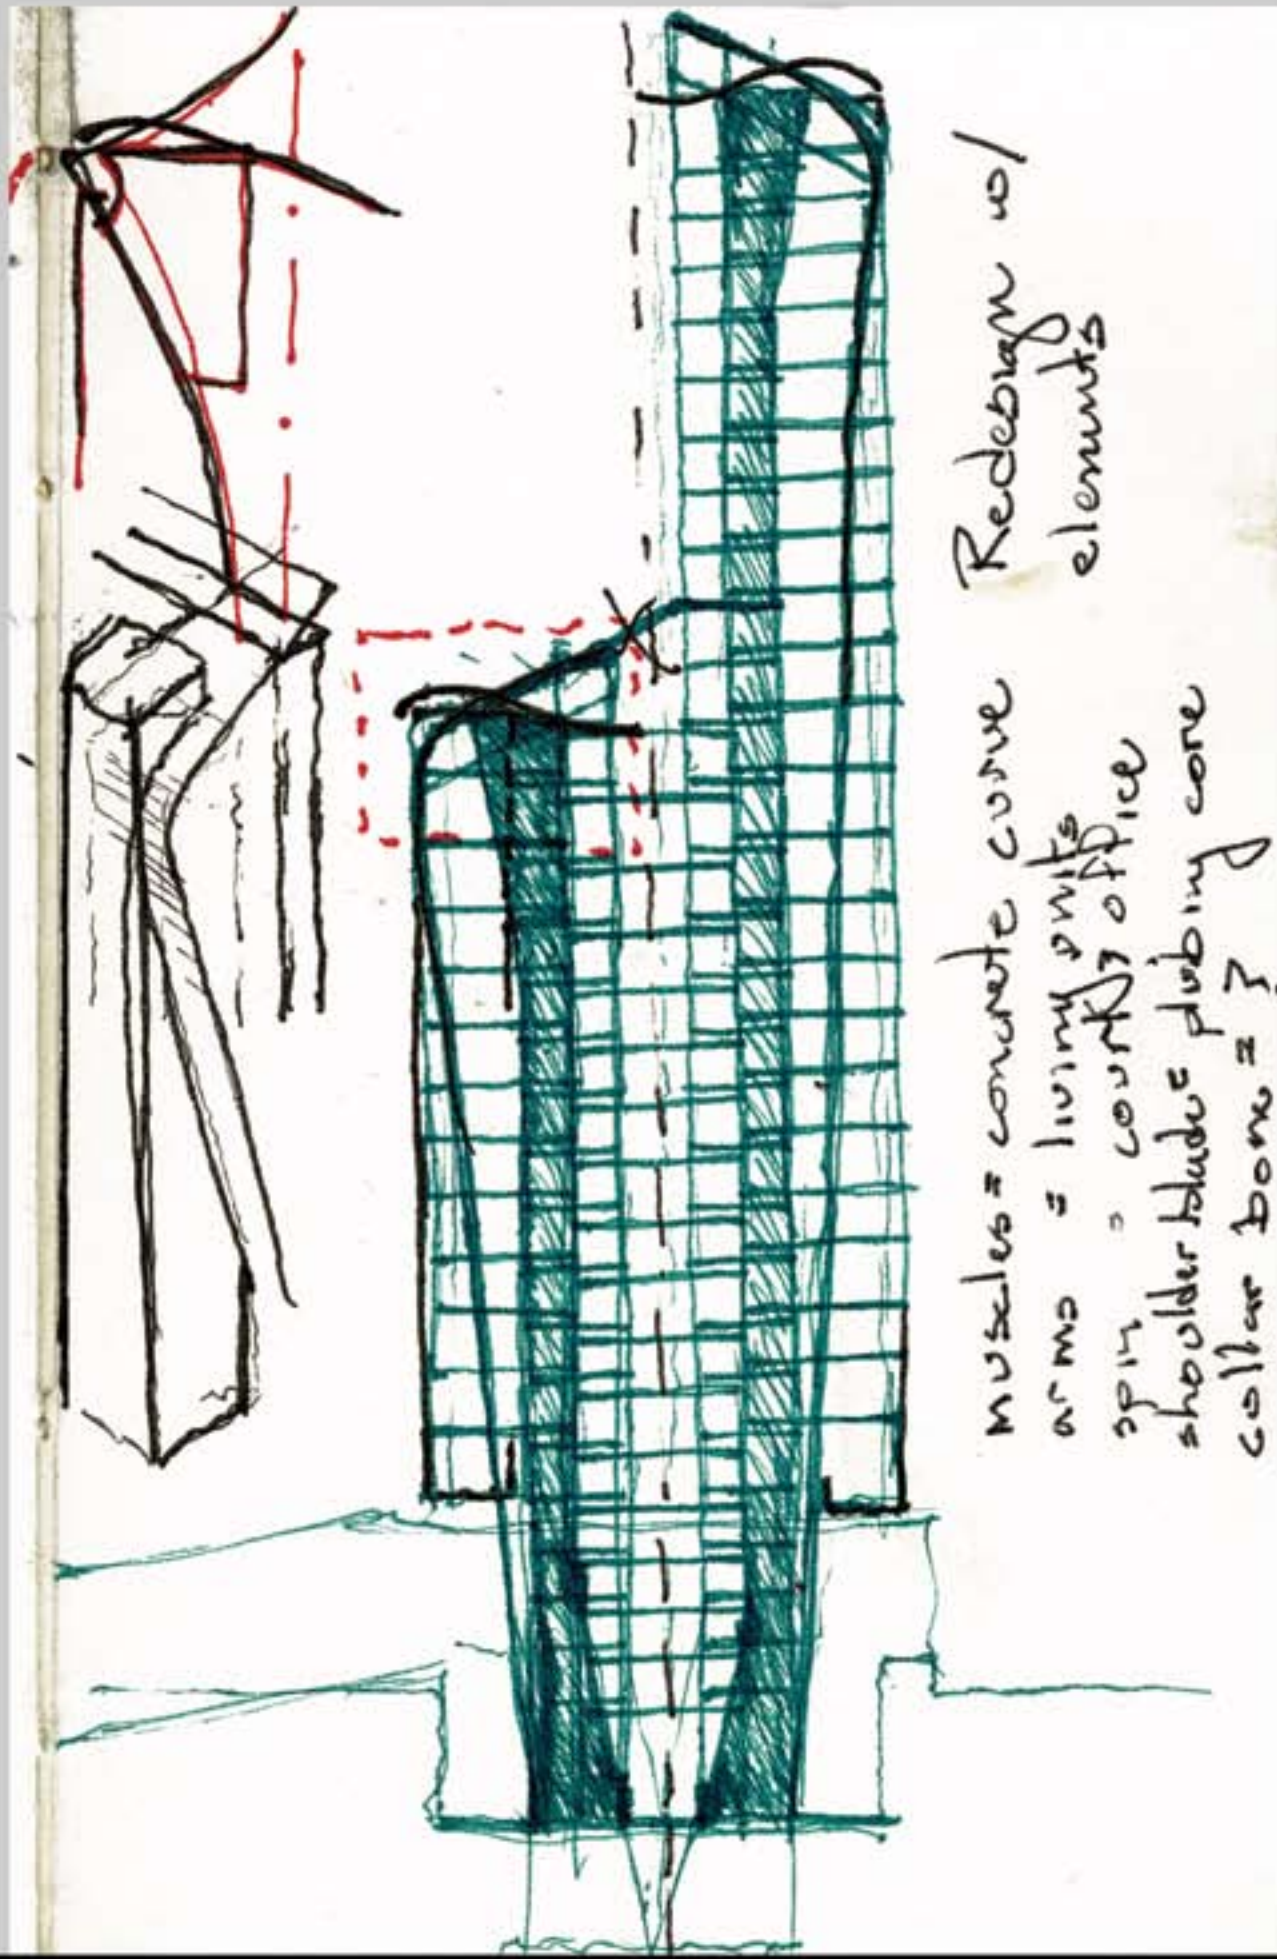 muscles = concrete curve
arms = living units
spin = courtyd office
shoulder blade = plubing core
collar bone = ?
Redesign w/
elements